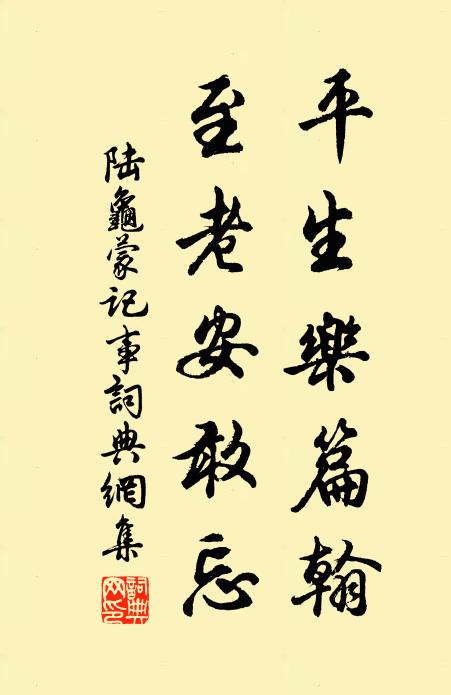 平生樂篇翰
至老安敢忘
陸龜蒙記事詞典網集
詞典網印